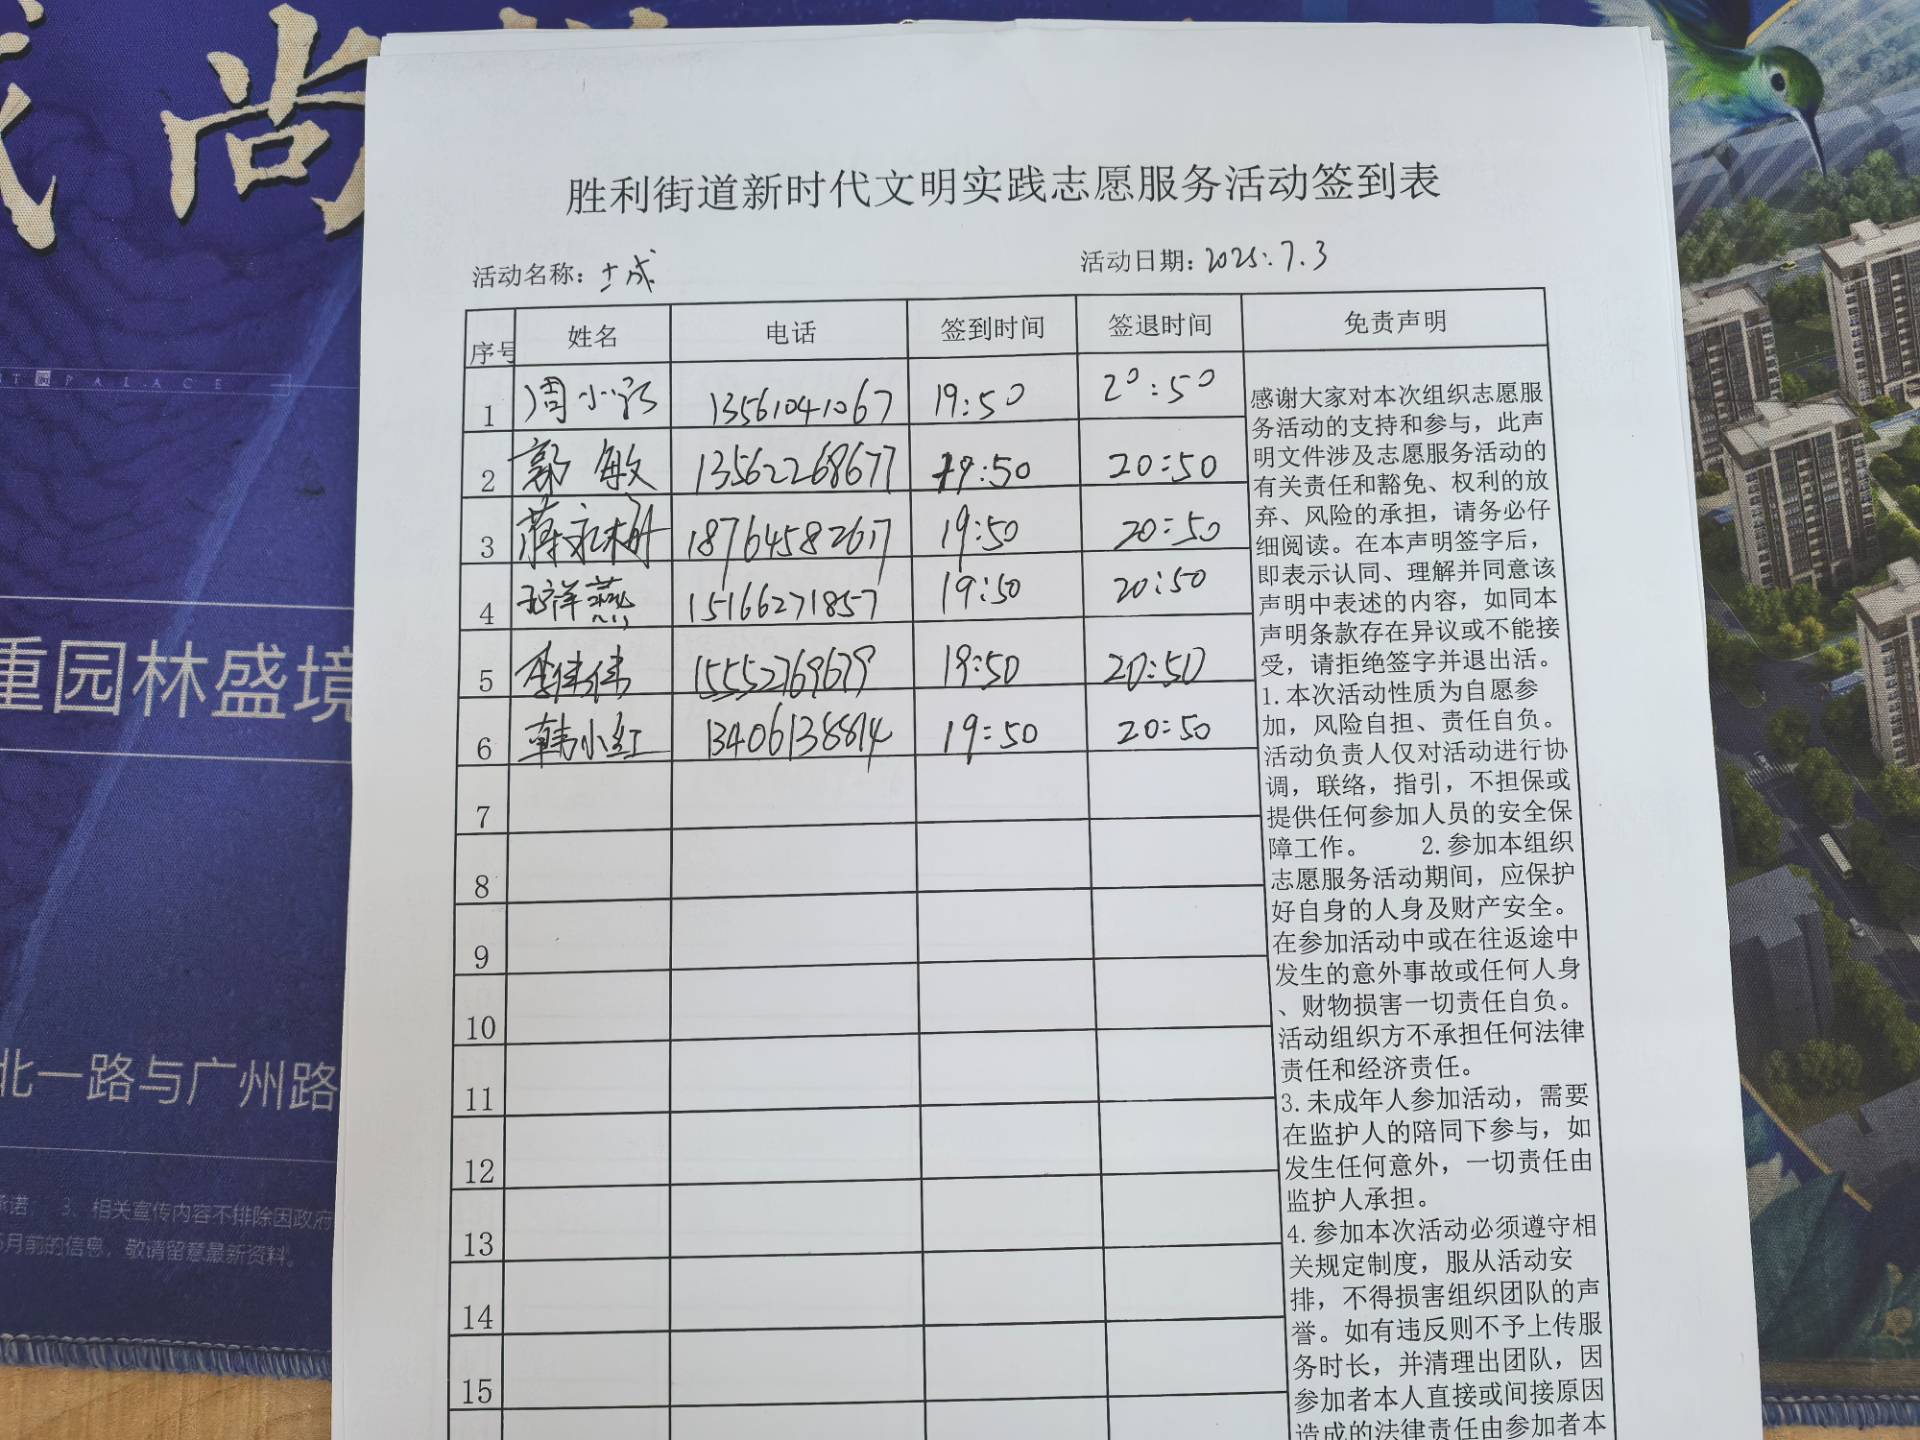 尚
PALACE
重园林盛境
北一路与广州路
承诺; 3、相关宣传内容不排除因政府
月前的信息, 敬请留意最新资料。
胜利街道新时代文明实践志愿服务活动签到表
活动名称:
活动日期: 2025.7.3
序号 姓名 电话 签到时间 签退时间 免责声明
1 周小 13561041067 19:50 20:50
2 郭敏 13562268677 19:50 20:50
3 蒋永树 18764582617 19:50 20:50
4 燕 15166271857 19:50 20:50
5 李伟伟 15552769679 19:50 20:50
6 韩小红 13406138814 19:50 20:50
7
8
9
10
11
12
13
14
15
感谢大家对本次组织志愿服
务活动的支持和参与, 此声
明文件涉及志愿服务活动的
有关责任和豁免、权利的放
弃、风险的承担, 请务必仔
细阅读。在本声明签字后,
即表示认同、理解并同意该
声明中表述的内容, 如同本
声明条款存在异议或不能接
受, 请拒绝签字并退出活。
1.本次活动性质为自愿参
加, 风险自担、责任自负。
活动负责人仅对活动进行协
调, 联络, 指引, 不担保或
提供任何参加人员的安全保
障工作。 2.参加本组织
志愿服务活动期间, 应保护
好自身的人身及财产安全。
在参加活动中或在往返途中
发生的意外事故或任何人身
、财物损害一切责任自负。
活动组织方不承担任何法律
责任和经济责任。
3.未成年人参加活动, 需要
在监护人的陪同下参与, 如
发生任何意外, 一切责任由
监护人承担。
4.参加本次活动必须遵守相
关规定制度, 服从活动安
排, 不得损害组织团队的声
誉。如有违反则不予上传服
务时长, 并清理出团队, 因
参加者本人直接或间接原因
造成的法律责任由参加者本